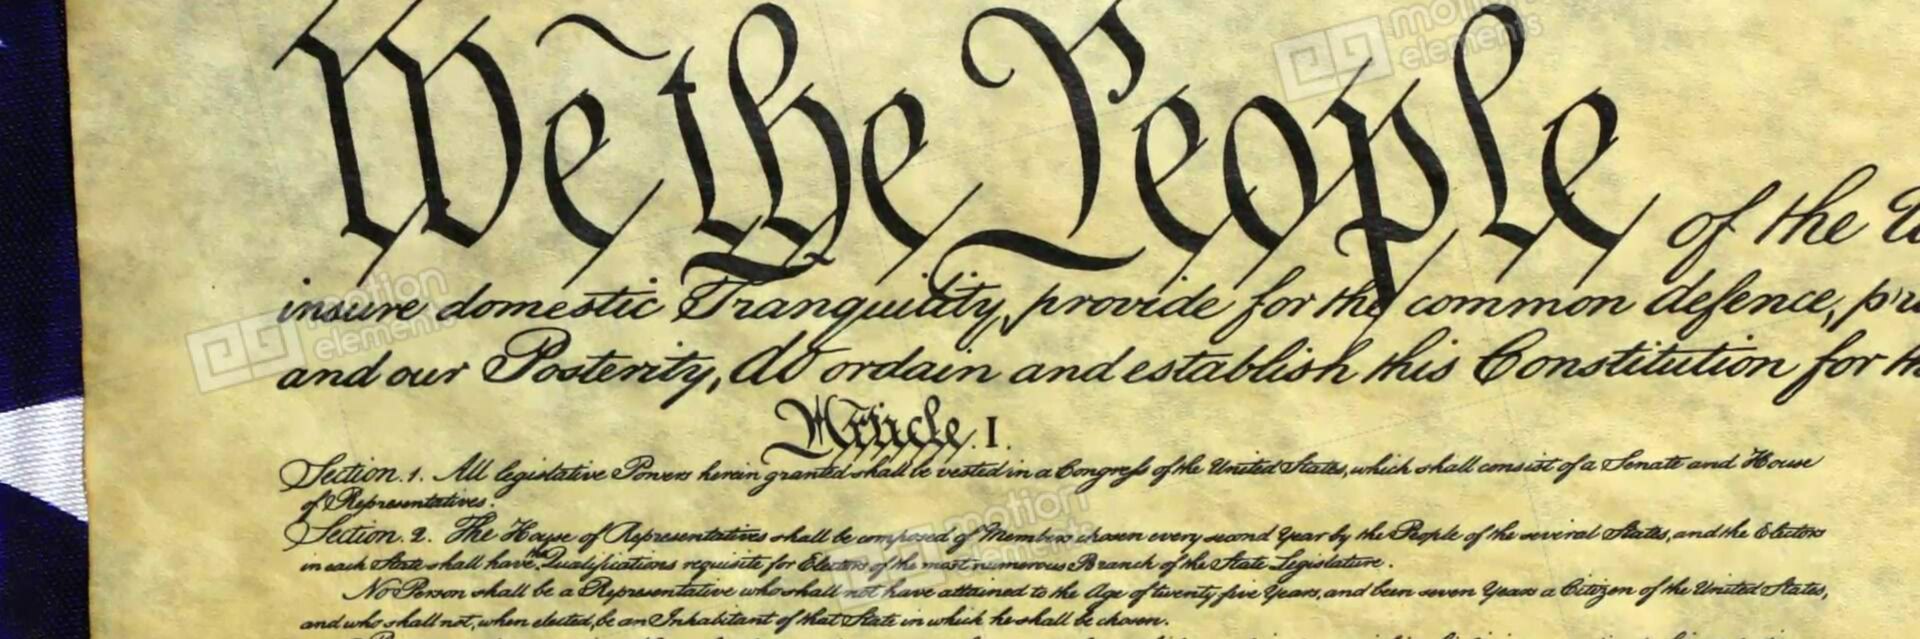 We the People of the
insure domestic Tranquility, provide for the common defence,
and our Posterity, do ordain and establish this Constitution for
Article. I.
Section. 1. All legislative Powers herein granted shall be vested in a Congress of the United States, which shall consist of a Senate and House
of Representatives.
Section. 2. The House of Representatives shall be composed of Members chosen every second Year by the People of the several States, and the Electors
in each State shall have the Qualifications requisite for Electors of the most numerous Branch of the State Legislature.
No Person shall be a Representative who shall not have attained to the Age of twenty five Years, and been seven Years a Citizen of the United States,
and who shall not, when elected, be an Inhabitant of that State in which he shall be chosen.
motion
elements
motion
elements
motion
elements